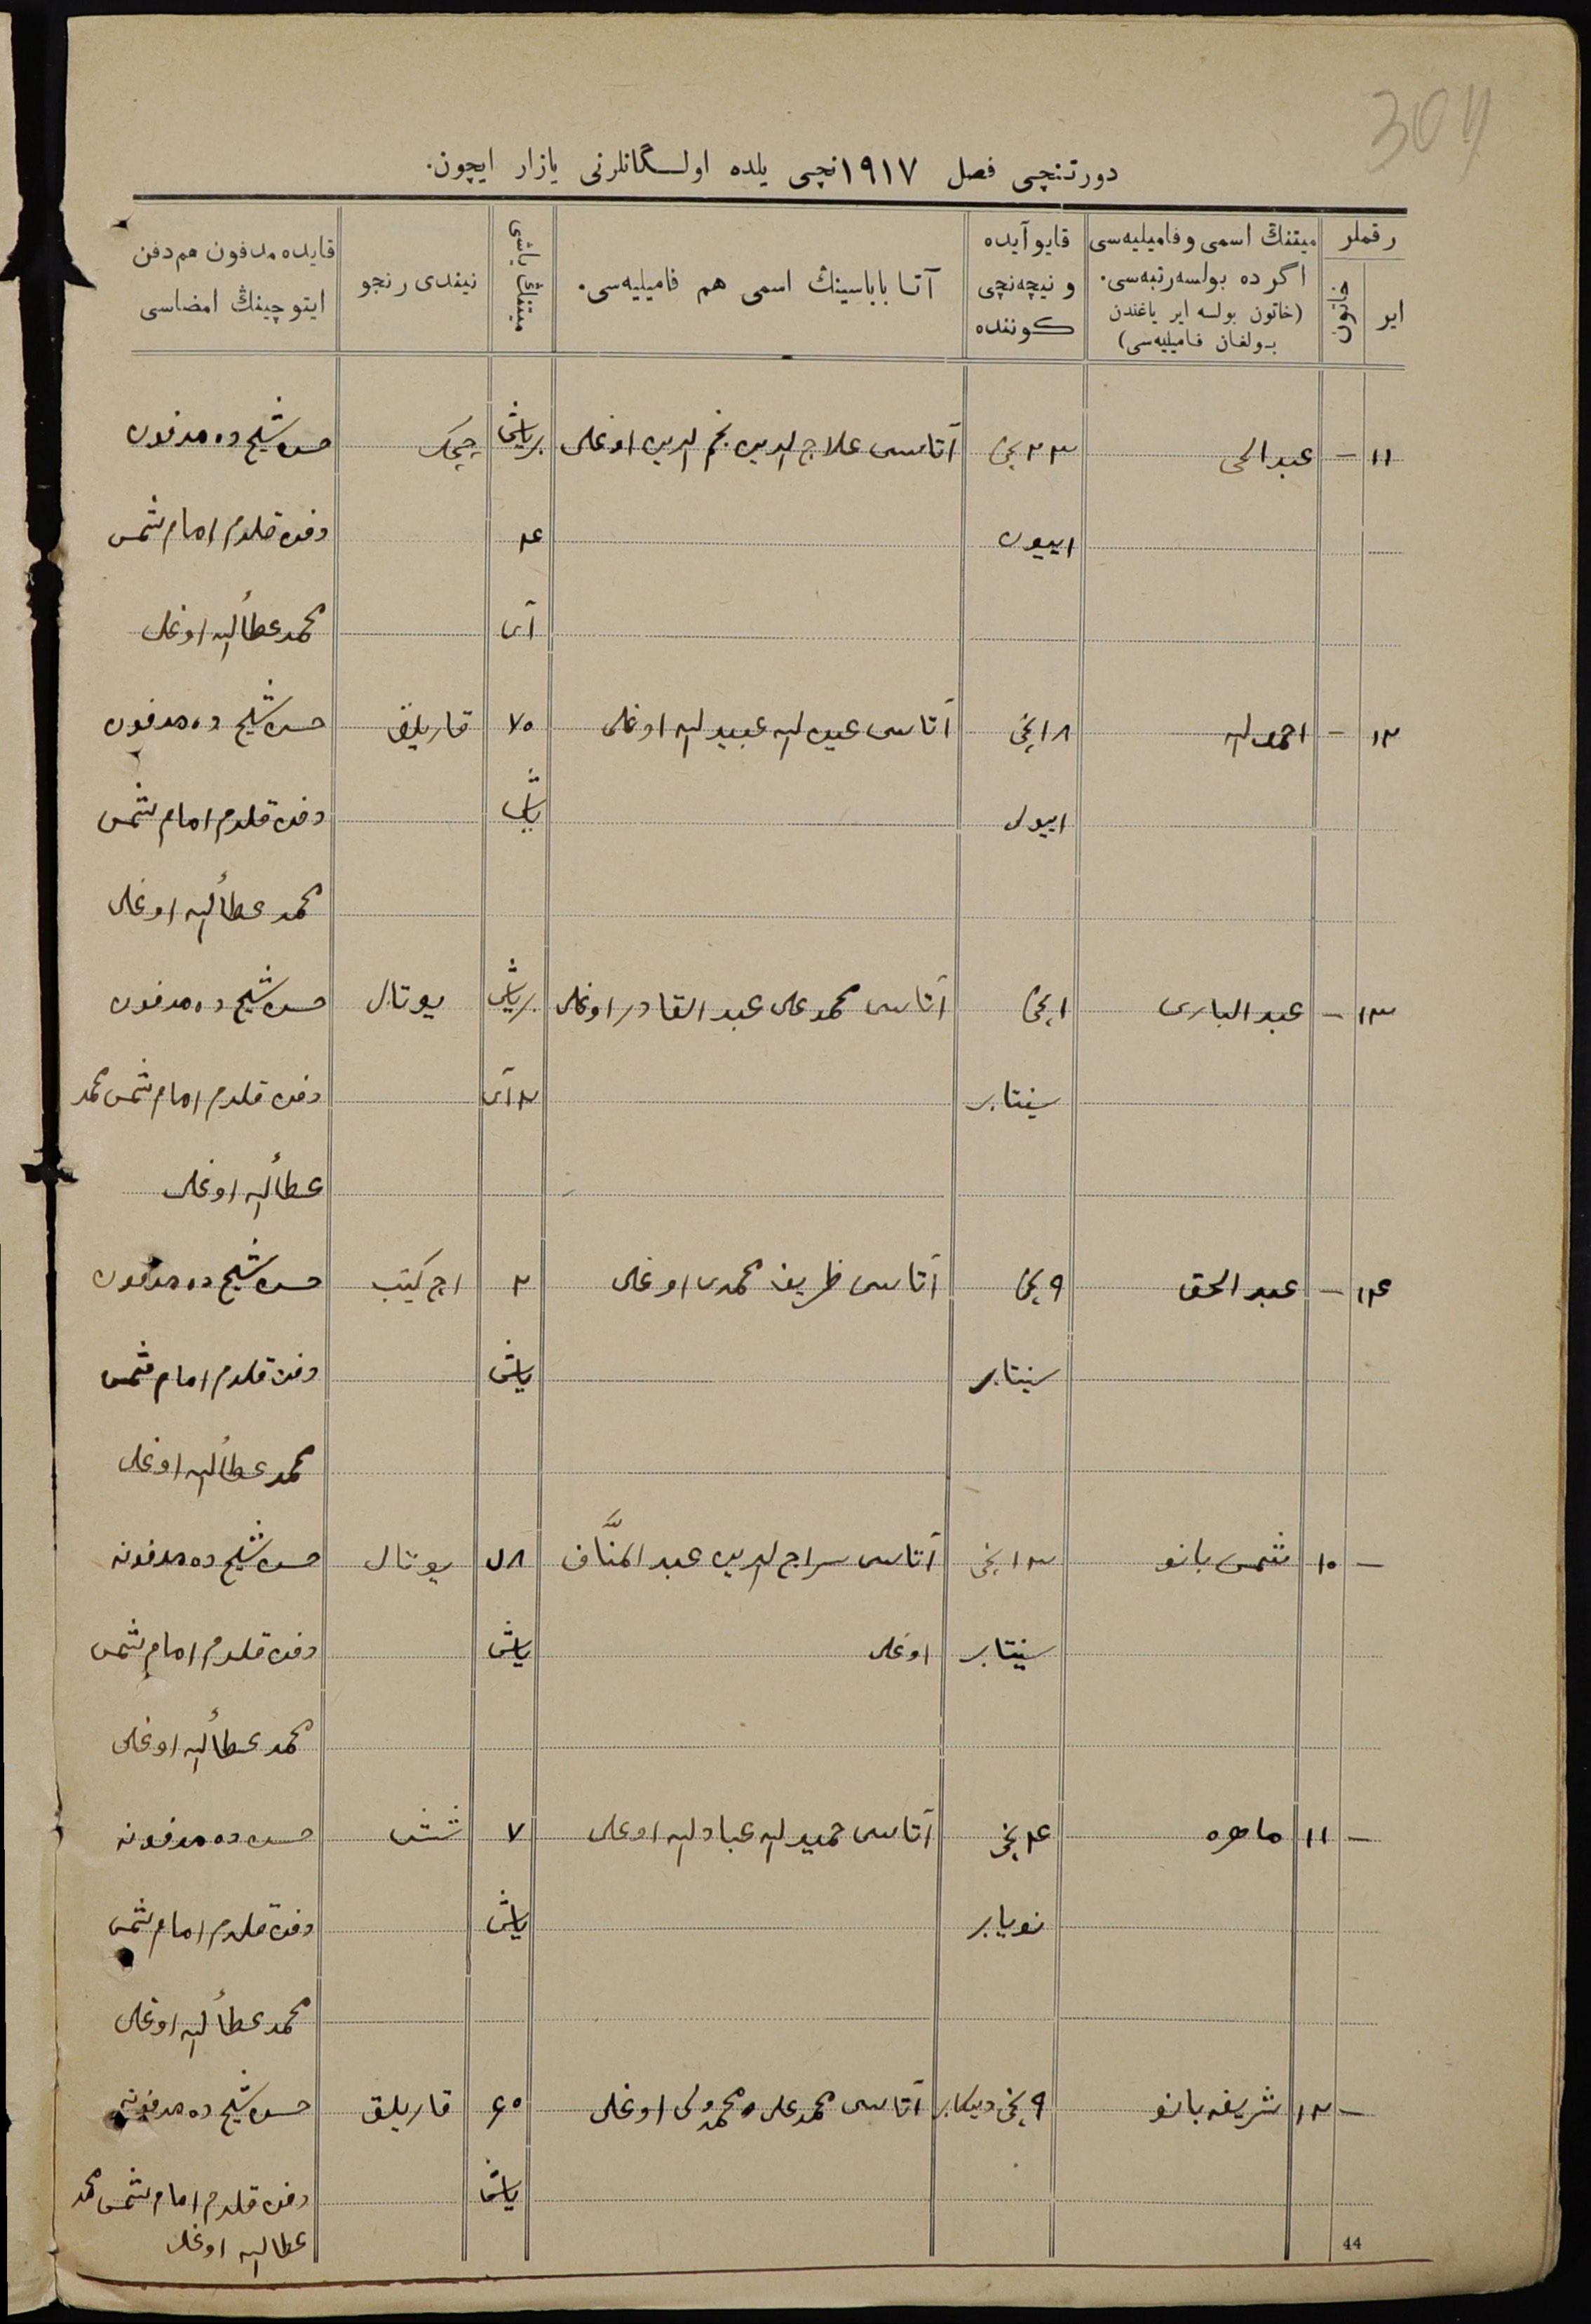 304
دورتنچی فصل ۱۹۱۷نچی یلده اولـگانلرنی یازار ایچون.
رقملر
ایر
خاتون
میتنڭ اسمی و فامیلیه‌سی
اگر ده بولسه رتبه‌سی.
(خاتون بولسه ایر یاغندن
بولغان فامیلیه‌سی)
قایو آیده
و نیچه‌نچی
کوننده
آتا باباسینڭ اسمی هم فامیلیه‌سی.
میتنڭ یاشی
نیندی رنجو
قایده مدفون هم دفن
ایتوچینڭ امضاسی
۱۱ – عبدالحی ۲۳ نچی آتاسی علاج الدین نجم الدین اوغلی بر یاش چیچک حسن شیخ ده مدفون
اییون ۴ دفن قلدم امام شمس
آی محمد عطأالله اوغلی
۱۲ – احمدالله ۱۸ نچی آتاسی عبدالله عبیدالله اوغلی ۷۵ قاریلق حسن شیخ ده مدفون
اییول یاش دفن قلدم امام شمس
محمد عطأالله اوغلی
۱۳ – عبدالباری ۱ نچی آتاسی محمدعلی عبدالقادر اوغلی بر یاش یوتال حسن شیخ ده مدفون
سینتابر ۲ آی دفن قلدم امام شمس محمد
عطأالله اوغلی
۱۴ – عبدالحق ۹ نچی آتاسی ظریف محمدی اوغلی ۲ اچ کیتب حسن شیخ ده مدفون
سینتابر یاش دفن قلدم امام شمس
محمد عطأالله اوغلی
– ۱۰ شمس بانو ۱۳ نچی آتاسی سراج الدین عبدالمنّاف ۸ یوتال حسن شیخ ده مدفونه
سینتابر اوغلی یاش دفن قلدم امام شمس
محمد عطأالله اوغلی
– ۱۱ ماهره ۴ نچی آتاسی حمیدالله عبادالله اوغلی ۷ شش حسن ده مدفونه
نویابر یاش دفن قلدم امام شمس
محمد عطأالله اوغلی
– ۱۲ شریفه بانو ۹ نچی دیکابر آتاسی محمدعلی محمدولی اوغلی ۶۵ قاریلق حسن شیخ ده مدفونه
یاش دفن قلدم امام شمس محمد
عطاالله اوغلی
44